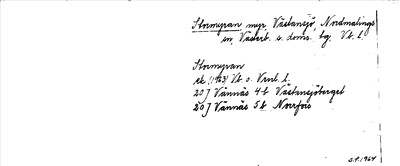 Stormyran, myr, Västansjö, Nordmalings
sn, Västerb. s. doms. bg. Vb. l.
Stormyran
ek (1963) Vb. o. Vrml. l.
20 J Vännäs 4 b Västansjöberget
20 J Vännäs 5 b Norrfors
S.P. 1964